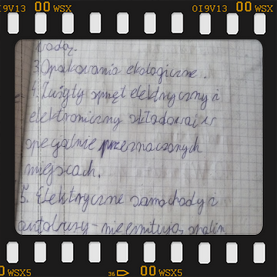 I9V13 00 WSX I9V13 00 WSX
wodą.
3. Opakowania ekologiczne.
4. Zużyty sprzęt elektryczny i
elektroniczny składować w
specjalnie przeznaczonych
miejscach.
5. Elektryczne samochody i
autobusy - nie emitują spalin
00 WSX5 36 00 WSX5